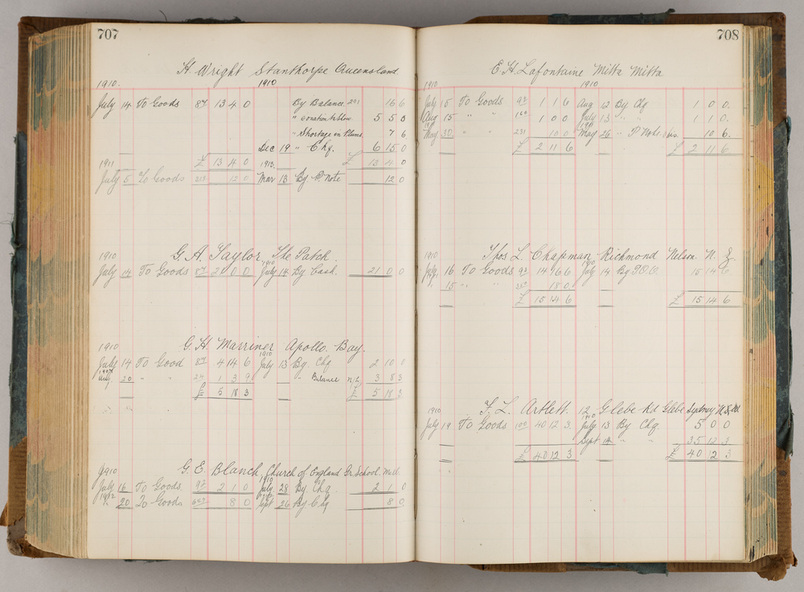 707
H. Wright Stanthorpe Queensland
1910. 1910
July 14 To Goods 87 13 4 0 By Balance 16 6
" 5 5 0
" Shortage on Plums 7 6
Dec 19 " Chq. 6 15 0
1911 £ 13 4 0 1912 £ 13 4 0
July 5 To Goods 12 0 Mar 13 By P. Note 12 0
1910 G. A. Taylor The Patch 1910
July 14 To Goods 87 2 0 0 July 14 By Cash 2 0 0
1910 G. H. Marriner Apollo Bay 1910
July 14 To Good 87 4 14 6 July 13 By Chq 2 10 0
Aug 20 " " 1 3 9 " Balance 3 8 3
£ 5 18 3 £ 5 18 3
1910 G. E. Blanch Church of England Gr. School Melb 1910
July 16 To Goods 92 2 1 0 July 28 By Chq 2 1 0
20 To Goods 8 0 Sept 26 By Chq 8 0
708
E. H. Lafontaine Mitta Mitta
1910 1910
July 15 To Goods 93 1 1 0 Aug 12 By Chq 1 0 0
Aug 15 " " 169 1 0 0 July 13 " " 1 1 0
May 30 " " 231 10 6 May 26 " P. Note 10 6
£ 2 11 6 £ 2 11 6
1910 Thos L. Chapman Richmond Nelson N. Z.
July 16 To Goods 93 14 16 6 July 14 By P.O.O. 15 14 6
15 " " 18 0
£ 15 14 6 £ 15 14 6
1910 T. L. Artlett 12 Glebe Rd Glebe Sydney N.S.W.
July 19 To Goods 40 12 3 July 13 By Chq 5 0 0
Sept 12 " " 35 12 3
£ 40 12 3 £ 40 12 3